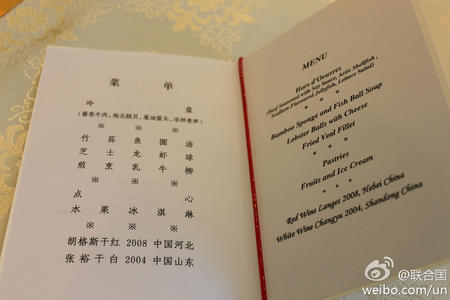 菜 单
冷 盘
(酱香牛肉,北极贝,葱油蜇头,凉拌青笋)
※ ※ ※
竹 荪 鱼 圆 汤
芝 士 龙 虾 球
煎 烹 乳 牛 柳
※ ※ ※
点 心
水 果 冰 淇 淋
※ ※
朗格斯干红 2008 中国河北
张裕干白 2004 中国山东
MENU
Hors d'Oeuvres
(Beef Seasoned with Soy Sauce, Artic Shellfish,
Scallion-Flavoured Jellyfish, Lettuce Salad)
* * *
Bamboo Sponge and Fish Ball Soup
Lobster Balls with Cheese
Fried Veal Fillet
* * *
Pastries
Fruits and Ice Cream
* * *
Red Wine Langes 2008, Hebei China
White Wine Changyu 2004, Shandong China
@联合国
weibo.com/un